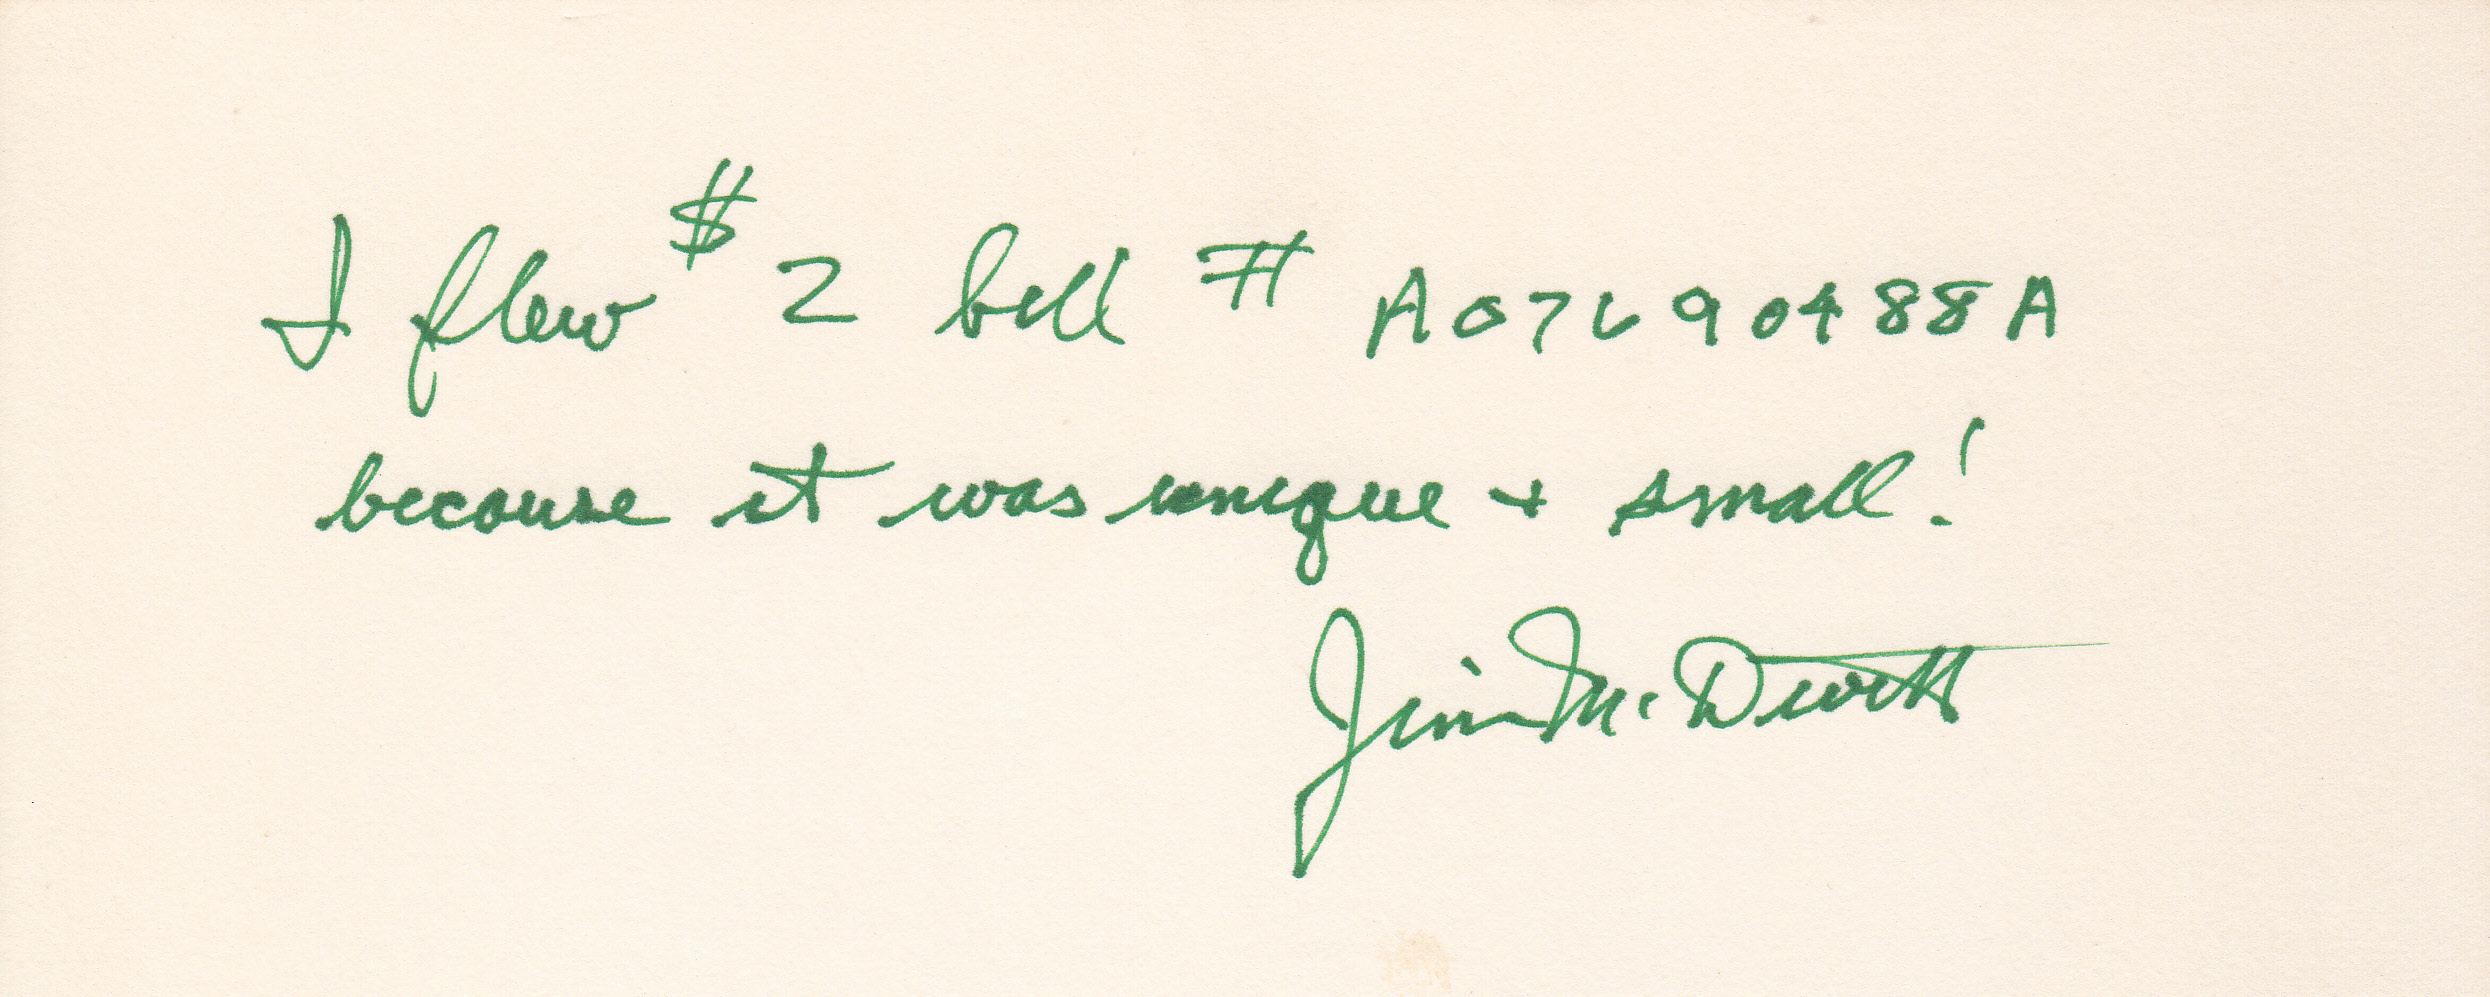 I flew $2 bill # A07690488A
because it was unique + small!
Jim McDivitt